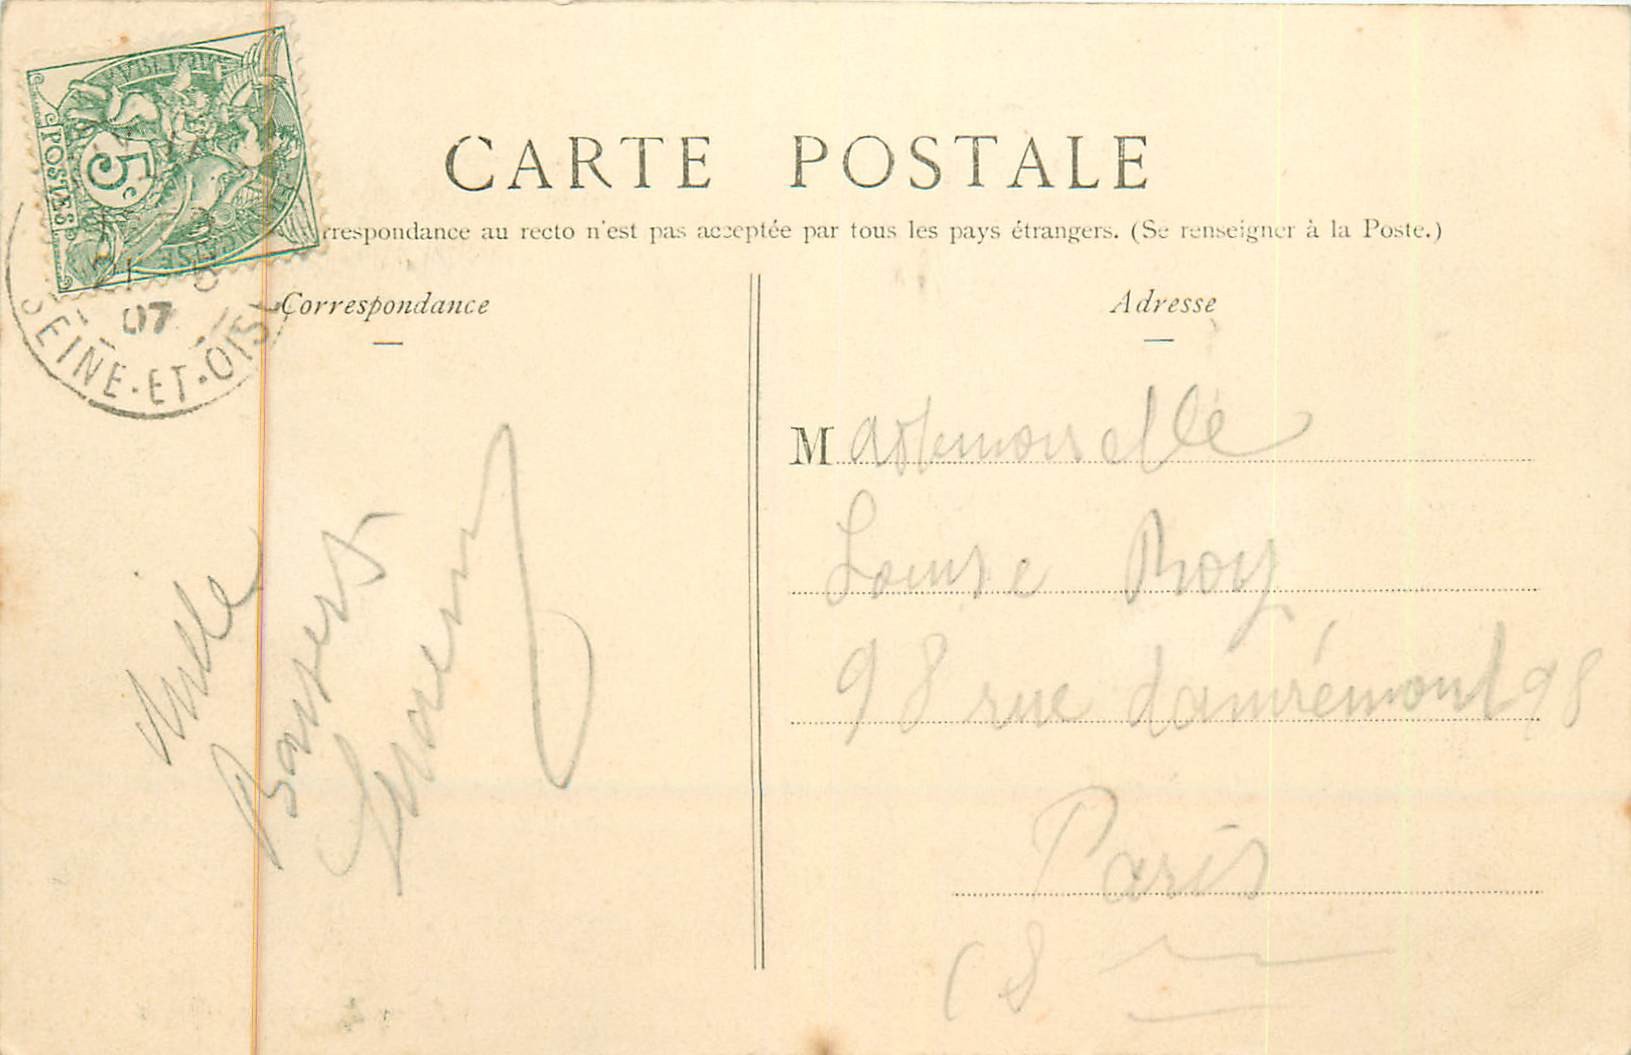 POSTES
5c
CARTE POSTALE
rrespondance au recto n'est pas acceptée par tous les pays étrangers. (Se renseigner à la Poste.)
21
07
SEINE-ET-OISE
Correspondance
Mille
Baisers
Adresse
Mademoiselle
Louise Roy
98 rue damrémont 98
Paris
18